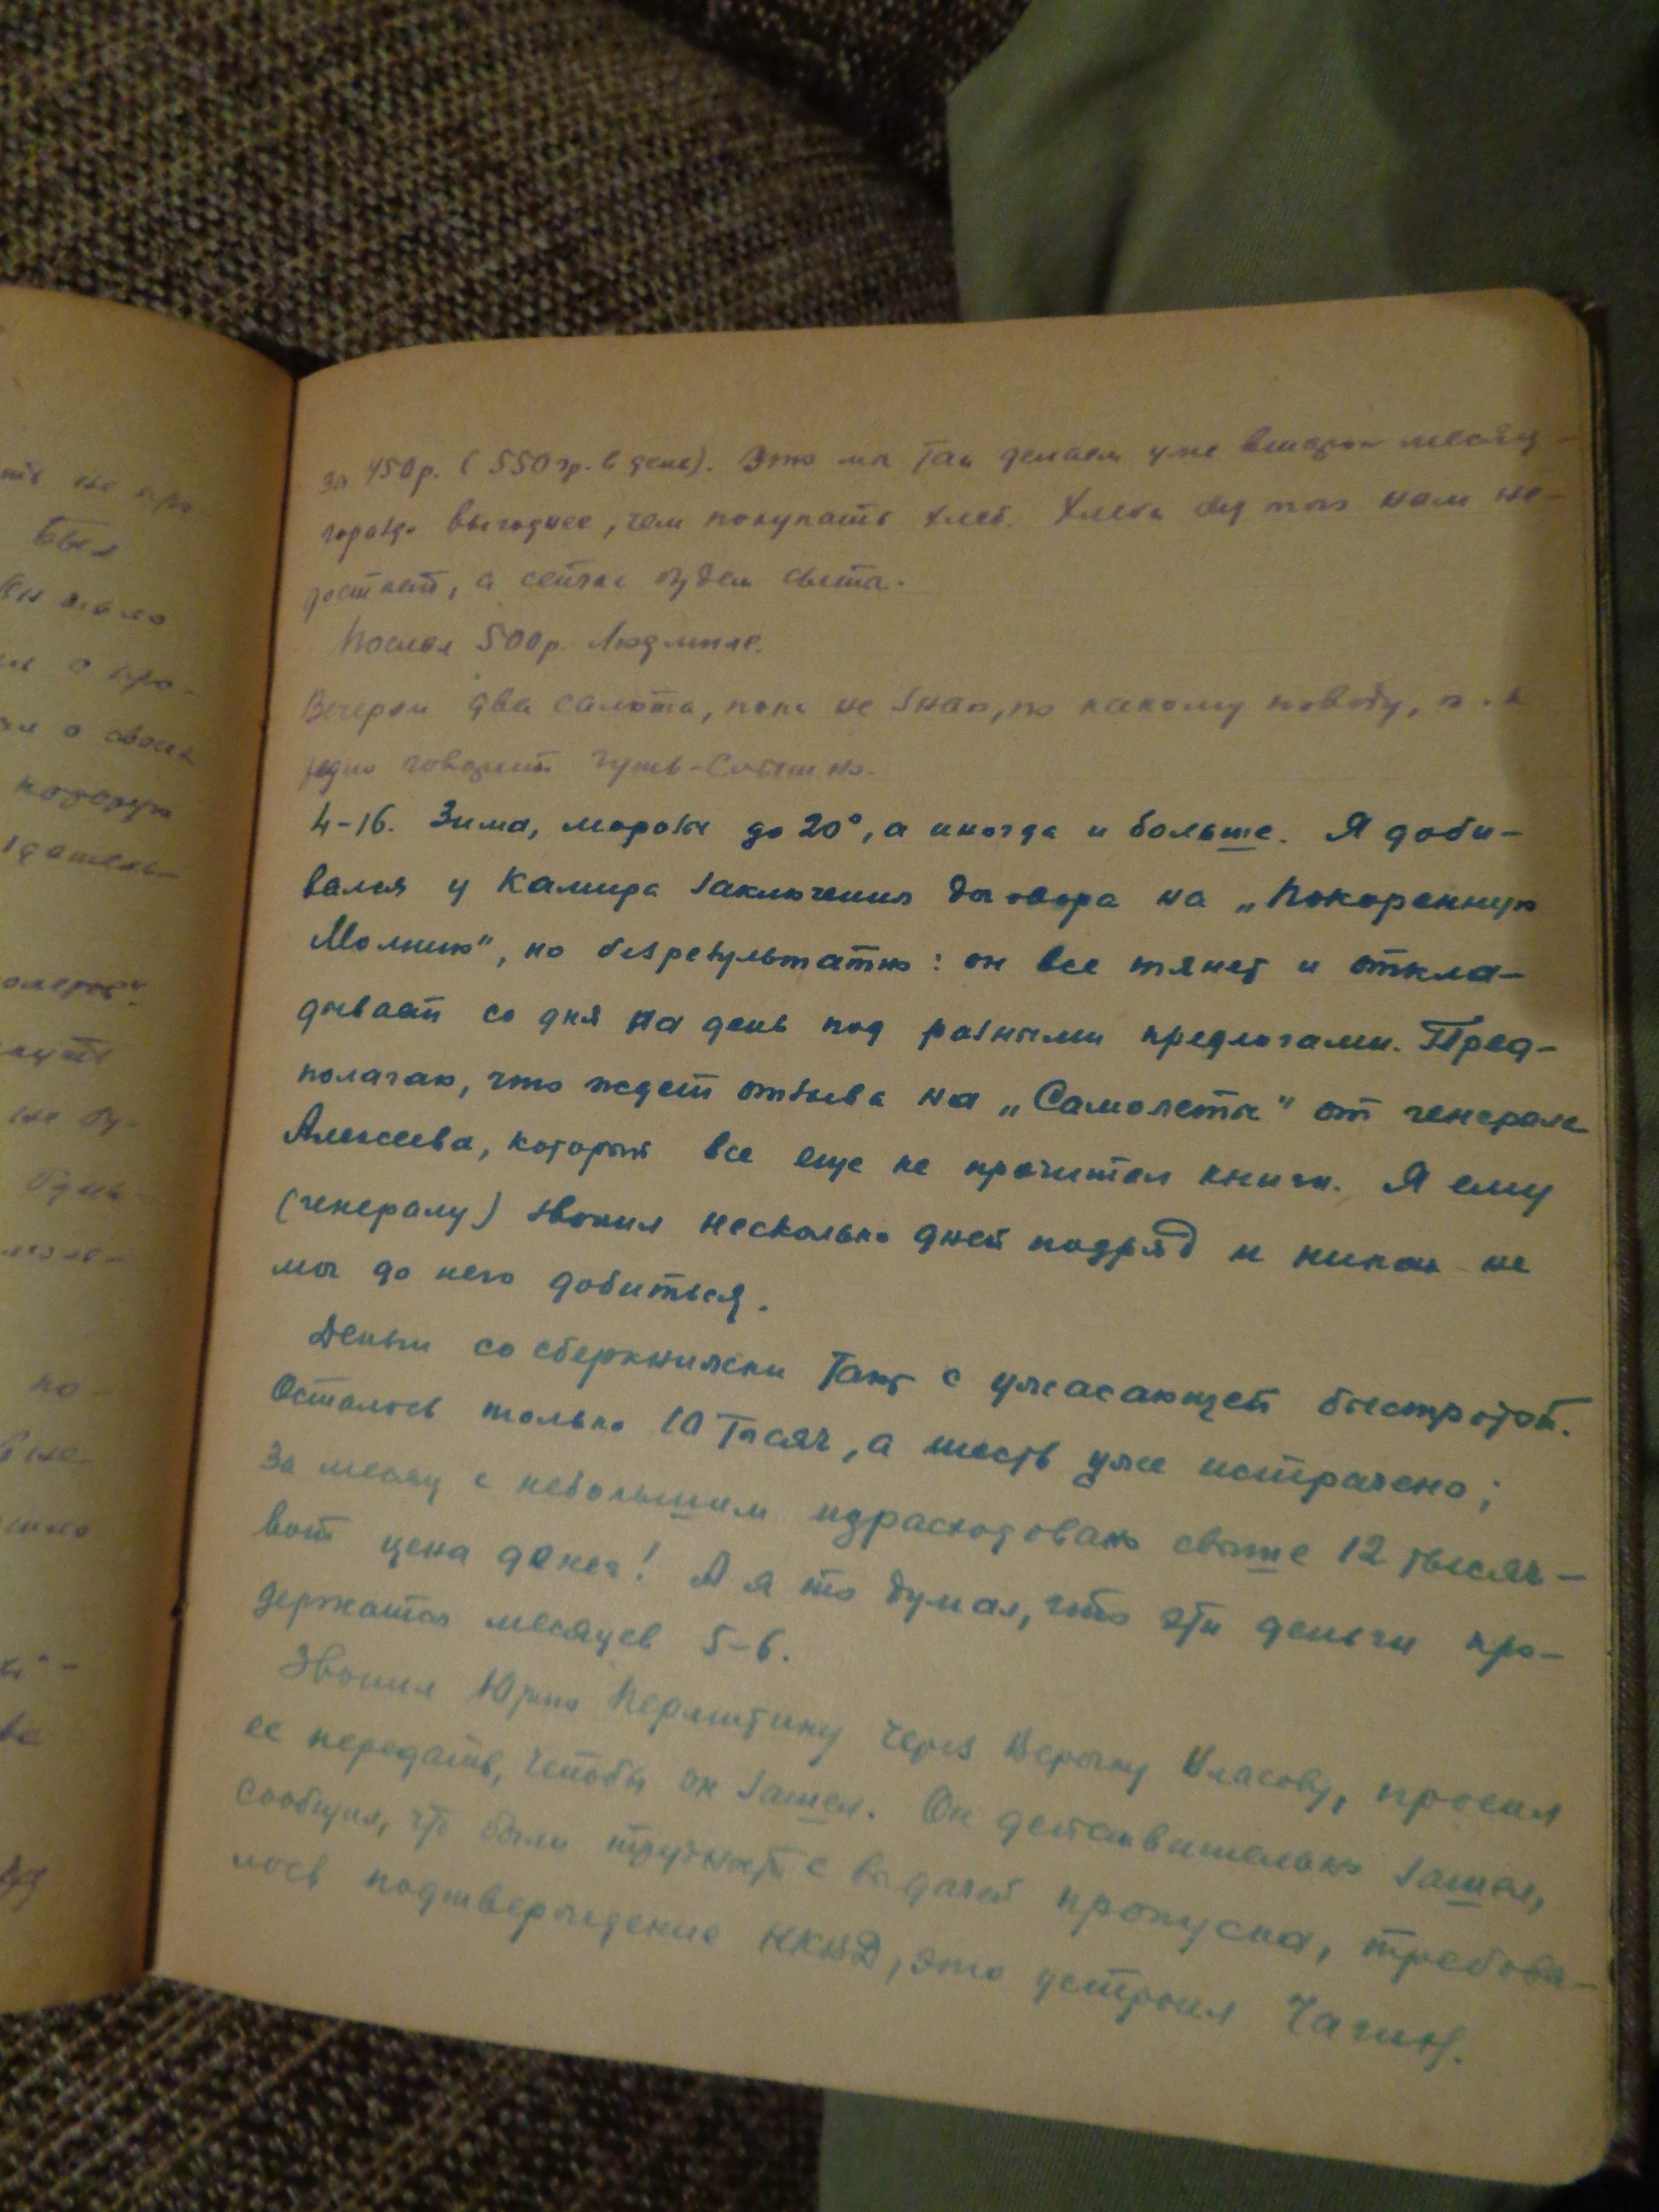 ть не про-
Был
о свои
которую
идатель-
не бу-
по-
за 450р. (550 гр. в день). Это мы так делаем уже второй месяц –
гораздо выгоднее, чем покупать хлеб. Хлеба нам не-
достает, а сейчас будем сыты.
Послал 500р. Людмиле.
Вечером два салюта, пока не знаю, по какому поводу, т.к
радио говорит чуть-слышно.
4-16. Зима, морозы до 20°, а иногда и больше. Я доби-
вался у Камира заключения договора на „Покоренную
Молнию", но безрезультатно: он все тянет и откла-
дывает со дня на день под разными предлогами. Пред-
полагаю, что ждет отзыва на „Самолеты" от генерала
Алексеева, который все еще не прочитал книги. Я ему
(генералу) звонил несколько дней подряд и никак не
мог до него добиться.
Деньги со сберкнижки тают с ужасающей быстротой.
Осталось только 10 тысяч, а шесть уже истрачено;
за месяц с небольшим израсходовано свыше 12 тысяч –
вот цена денег! А я то думал, что эти деньги про-
держатся месяцев 5-6.
Звонил Юрию Пермитину через Верочку Власову, просил
ее передать, чтобы он зашел. Он действительно зашел,
сообщил, что были трудности с выдачей пропуска, требова-
лось подтверждение НКВД, это устроил Чагин.